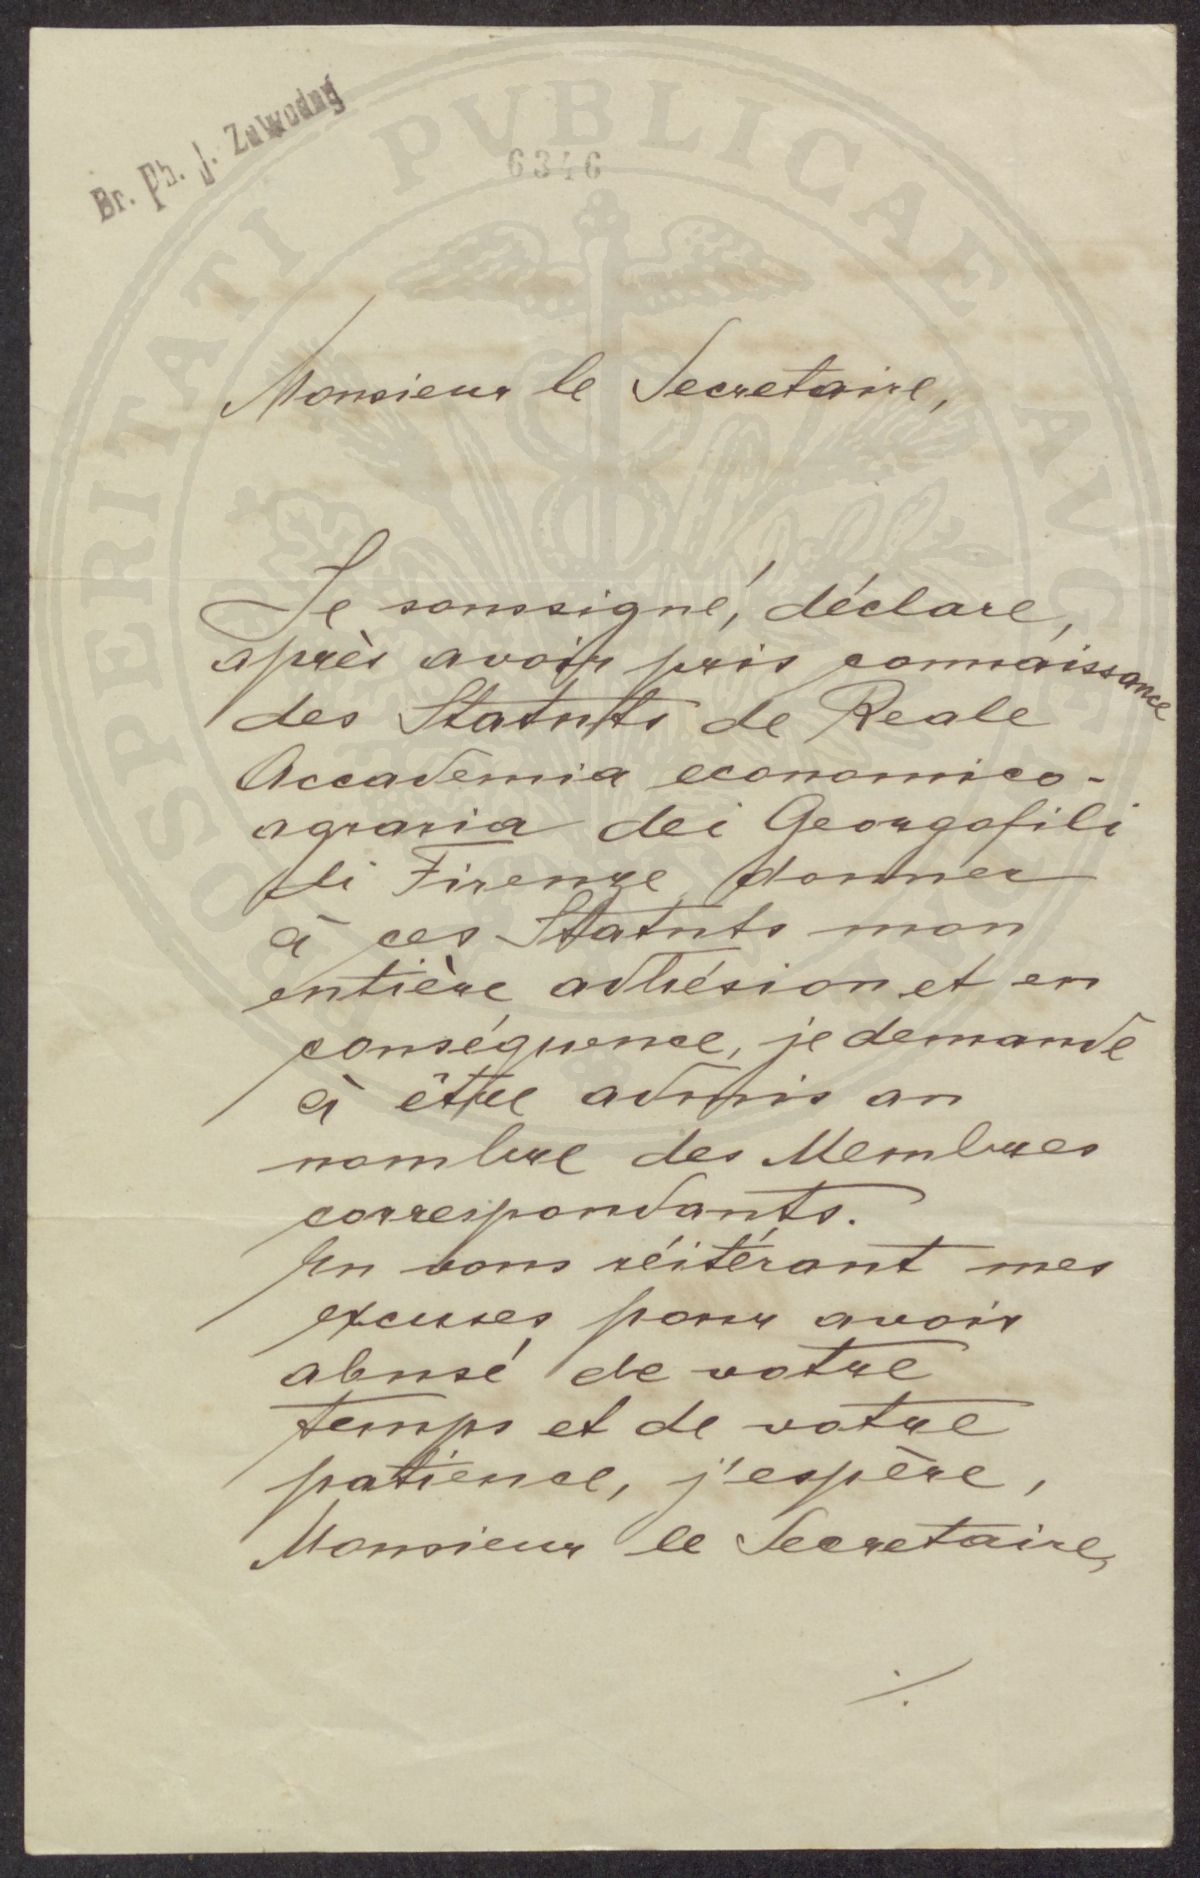 Br. Ph. J. Zawodny
6346
PROSPERITATI PUBLICAE AVGENDAE
Monsieur le Secretaire,
Je soussigné, déclare,
après avoir pris connaissance
des Statuts de Reale
Accademia economico-
agraria dei Georgofili
di Firenze, donner
à ces Statuts mon
entière adhésion et en
conséquence, je demande
à être admis au
nombre des Membres
correspondants.
En vous réitérant mes
excuses pour avoir
abusé de votre
temps et de votre
patience, j'espère,
Monsieur le Secretaire,
./.